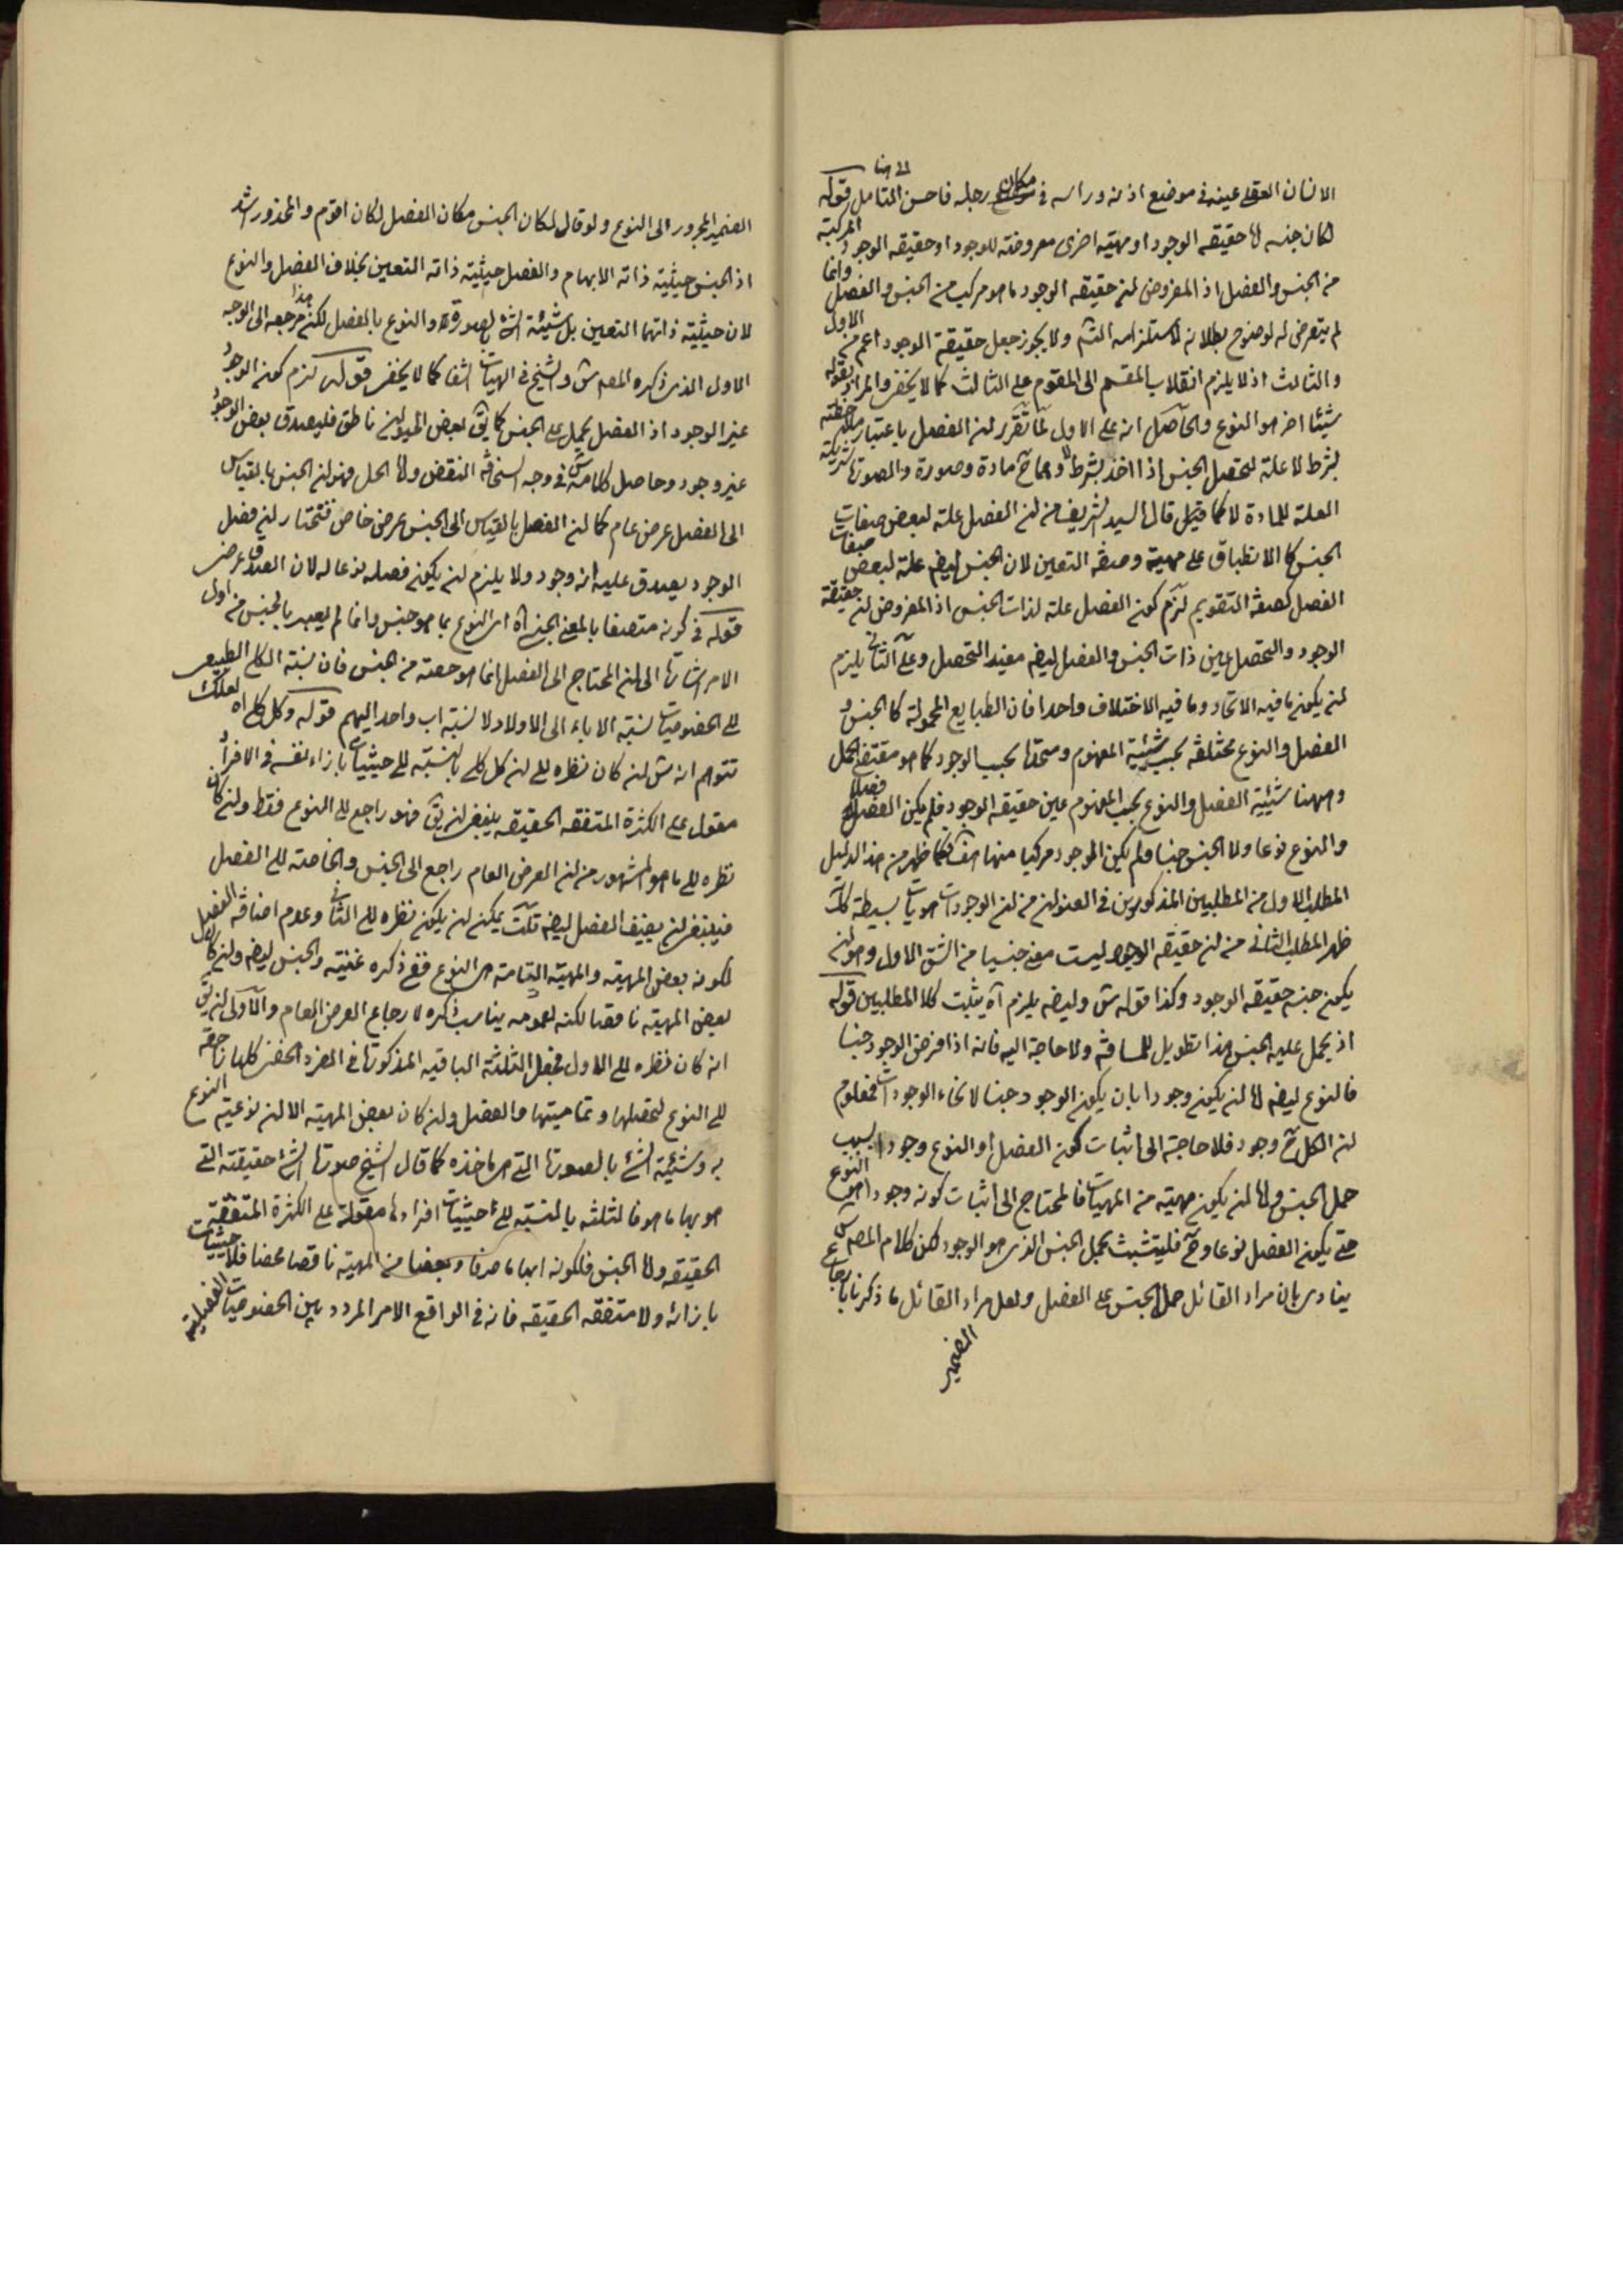 الانسان العقلی عینه فی موضع اذنه وراسه فی مکان رجله فاحسن التامل قوله
لکان جنسه اما حقیقه الوجود او مهیته اخری معروضته للوجود او حقیقه الوجود المرکبة
من الجنس والفصل اذ المفروض ان حقیقه الوجود ما هو مرکب من الجنس والفصل وانما
لم یتعرض له لوضوح بطلانه لاستلزامه التسم ولا یجوز جعل حقیقة الوجود اعم من الاول
والثالث اذ لا یلزم انقلاب المقسم الی المقوم علی الثالث کما لا یخفی والمراد بقوله
شیئا اخر هو النوع والحاصل انه علی الاول لما تقرر ان الفصل باعتبار ملاحظته
بشرط لا علة لتحصل الجنس اذا اخذ بشرط لا وهما ح مادة وصورة والصورة شریکة
العلة للمادة لا کما قیل قال السید الشریف من ان الفصل علة لبعض صفات
الجنس کالانطباق علی مهیة وصفة التعین لان الجنس ایضه علة لبعض صفات
الفصل کصفة التقویم لزم کون الفصل علة لذات الجنس اذ المفروض ان حقیقة
الوجود والتحصل عین ذات الجنس والفصل ایضه مفید التحصل وعلی الثانی یلزم
ان یکون ما فیه الاتحاد وما فیه الاختلاف واحدا فان الطبایع المحمولة کالجنس و
الفصل والنوع مختلفة بحسب شیئیة المفهوم ومتحدة بحسب الوجود کما هو مقتضی الحمل
وههنا شیئیة الفصل والنوع بحسب المفهوم عین حقیقه الوجود فلم یکن الفصل فصلا
والنوع نوعا ولا الجنس جنسا فلم یکن الوجود مرکبا منها هف فکما ظهر من هذا الدلیل
المطلب الاول من المطلبین المذکورین فی العنوان من ان الوجودات هویات بسیطة کک
ظهر المطلب الثانی من ان حقیقه الوجود لیست معنی جنسیا من الشق الاول وهو ان
یکون جنسه حقیقه الوجود وکذا قوله ش وایضه یلزم آه یثبت کلا المطلبین قوله
اذ یحمل علیه الجنس هذا تطویل للمسافة ولا حاجة الیه فانه اذا فرض الوجود جنسا
فالنوع ایضه اما ان یکون وجودا بان یکون الوجود جنسا لانحاء الوجودات فمعلوم
ان الکل ح وجود فلا حاجة الی اثبات کون الفصل او النوع وجودا بسبب
حمل الجنس واما ان یکون مهیته من المهیات فالمحتاج الی اثبات کونه وجودا هو النوع
حتی یکون الفصل نوعا وح فلیتشبث بحمل الجنس الذی هو الوجود لکن کلام المصه س
ینادی بان مراد القائل حمل الجنس علی الفصل ولعل مراد القائل ما ذکرنا بارجاع
الضمیر
الضمیر المجرور الی النوع ولو قال لکان الجنس مکان الفصل لکان اقوم والمحذور اشد
اذ الجنس حیثیة ذاته الابهام والفصل حیثیة ذاته التعین بخلاف الفصل والنوع
لان حیثیة ذاتهما التعین بل شیئیة الشئ بصورة والنوع بالفصل لکن هذا مرجعه الی الوجه
الاول الذی ذکره المصه ش والشیخ فی الهیات الشفا کما لا یخفی قوله لزم کون الوجود
غیر الوجود اذ الفصل یحمل علی الجنس کما یق بعض الحیوان ناطق فلیصدق بعض الوجود
غیر وجود وحاصل کلامه ش فی وجه السخافة النقض واما الحل فهو ان الجنس بالقیاس
الی الفصل عرض عام کما ان الفصل بالقیاس الی الجنس عرض خاص فتختار ان فصل
الوجود یصدق علیه انه وجود ولا یلزم ان یکون فصله نوعا له لان الصدق عرضی
قوله فی کونه متصفا بالمعنی الجنسی آه ای النوع بما هو جنس وانما لم یعبر بالجنس من اول
الامر اشارة الی ان المحتاج الی الفصل انما هو حصته من جنس فان نسبته الکلی الطبیعی
الی الخصوصیات نسبته الاباء الی الاولاد لا نسبته اب واحد الیهم قوله وکل کلی آه لعلک
تتوهم انه ش ان کان نظره الی ان کل کلی بالنسبته الی حیثیات بازاء نفسه فی الافراد
مقول علی الکثرة المتفقه الحقیقه ینبغی ان یق فهو راجع الی النوع فقط وان کان
نظره الی ما هو المشهور من ان العرض العام راجع الی الجنس والخاصة الی الفصل
فینبغی ان یضیف الفصل ایضه قلت یمکن ان یکون نظره الی الثانی وعدم اضافة الفصل
لکونه بعض المهیته والمهیته التامة هی النوع ففی ذکره غنیته والجنس ایضه وان کان
بعض المهیته ناقصا لکنه لعمومه یناسب ذکره لارجاع العرض العام والاولی ان یق
انه کان نظره الی الاول فجعل الثلثة الباقیه المذکورة فی المفرد الخفی کلها راجعة
الی النوع لتحصلها وتمامیتها والفصل وان کان بعض المهیته الا ان نوعیة النوع
به وشیئیة الشئ بالصورة التی هی ماخذه کما قال الشیخ صورة الشئ حقیقته التی
هو بها ما هو فالثلثه بالنسبته الی حیثیات افرادها مقولة علی الکثرة المتفقة
الحقیقه واما الجنس فلکونه ابهاما صرفا وبعضا من المهیته ناقصا محضا فلا حیثیات
بازائه ولا متفقه الحقیقه فانه فی الواقع الامر المردد بین الخصوصیات الفصلیة